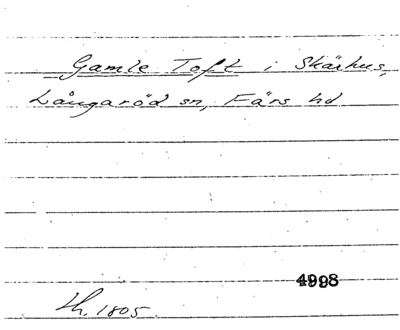 Gamle Toft i Skärhus,
Långaröd sn, Färs hd
4998
Lh. 1805.